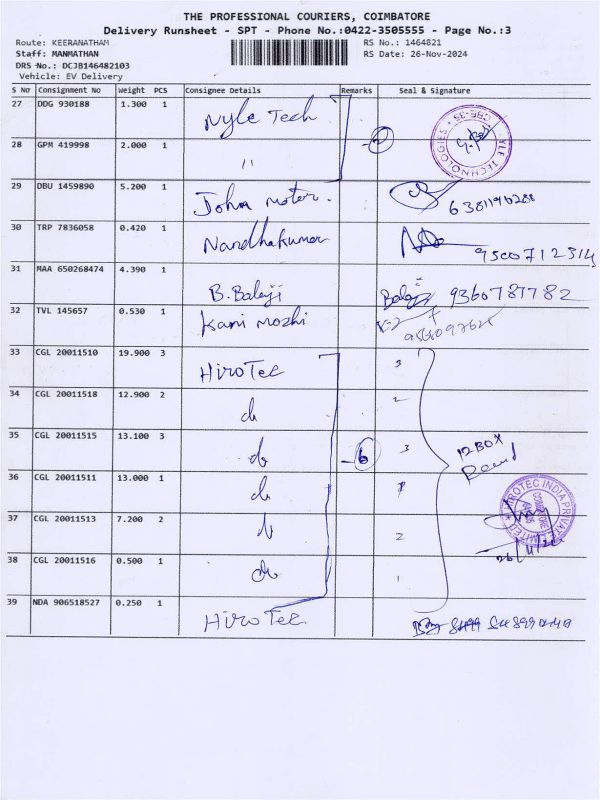 THE PROFESSIONAL COURIERS, COIMBATORE
Delivery Runsheet - SPT - Phone No.:0422-3505555 - Page No.:3
Route: KEERANATHAM RS No.: 1464821
Staff: MANMATHAN RS Date: 26-Nov-2024
DRS No.: DCJB146482103
Vehicle: EV Delivery
S No Consignment No Weight PCS Consignee Details Remarks Seal & Signature
27 DDG 930188 1.300 1 Nyle Tech
28 GPM 419998 2.000 1 "
29 DBU 1459890 5.200 1 John moter.
30 TRP 7836058 0.420 1 Nandhakumar
31 MAA 650268474 4.390 1 B. Balaji Balaji 9360787782
32 TVL 145657 0.530 1 Kani mozhi
33 CGL 20011510 19.900 3 HiroTec 3
34 CGL 20011518 12.900 2 do 2
35 CGL 20011515 13.100 3 do 6 3 12 BOX
36 CGL 20011511 13.000 1 do 1
37 CGL 20011513 7.200 2 do 2
38 CGL 20011516 0.500 1 do 1
39 NDA 906518527 0.250 1 HiroTec